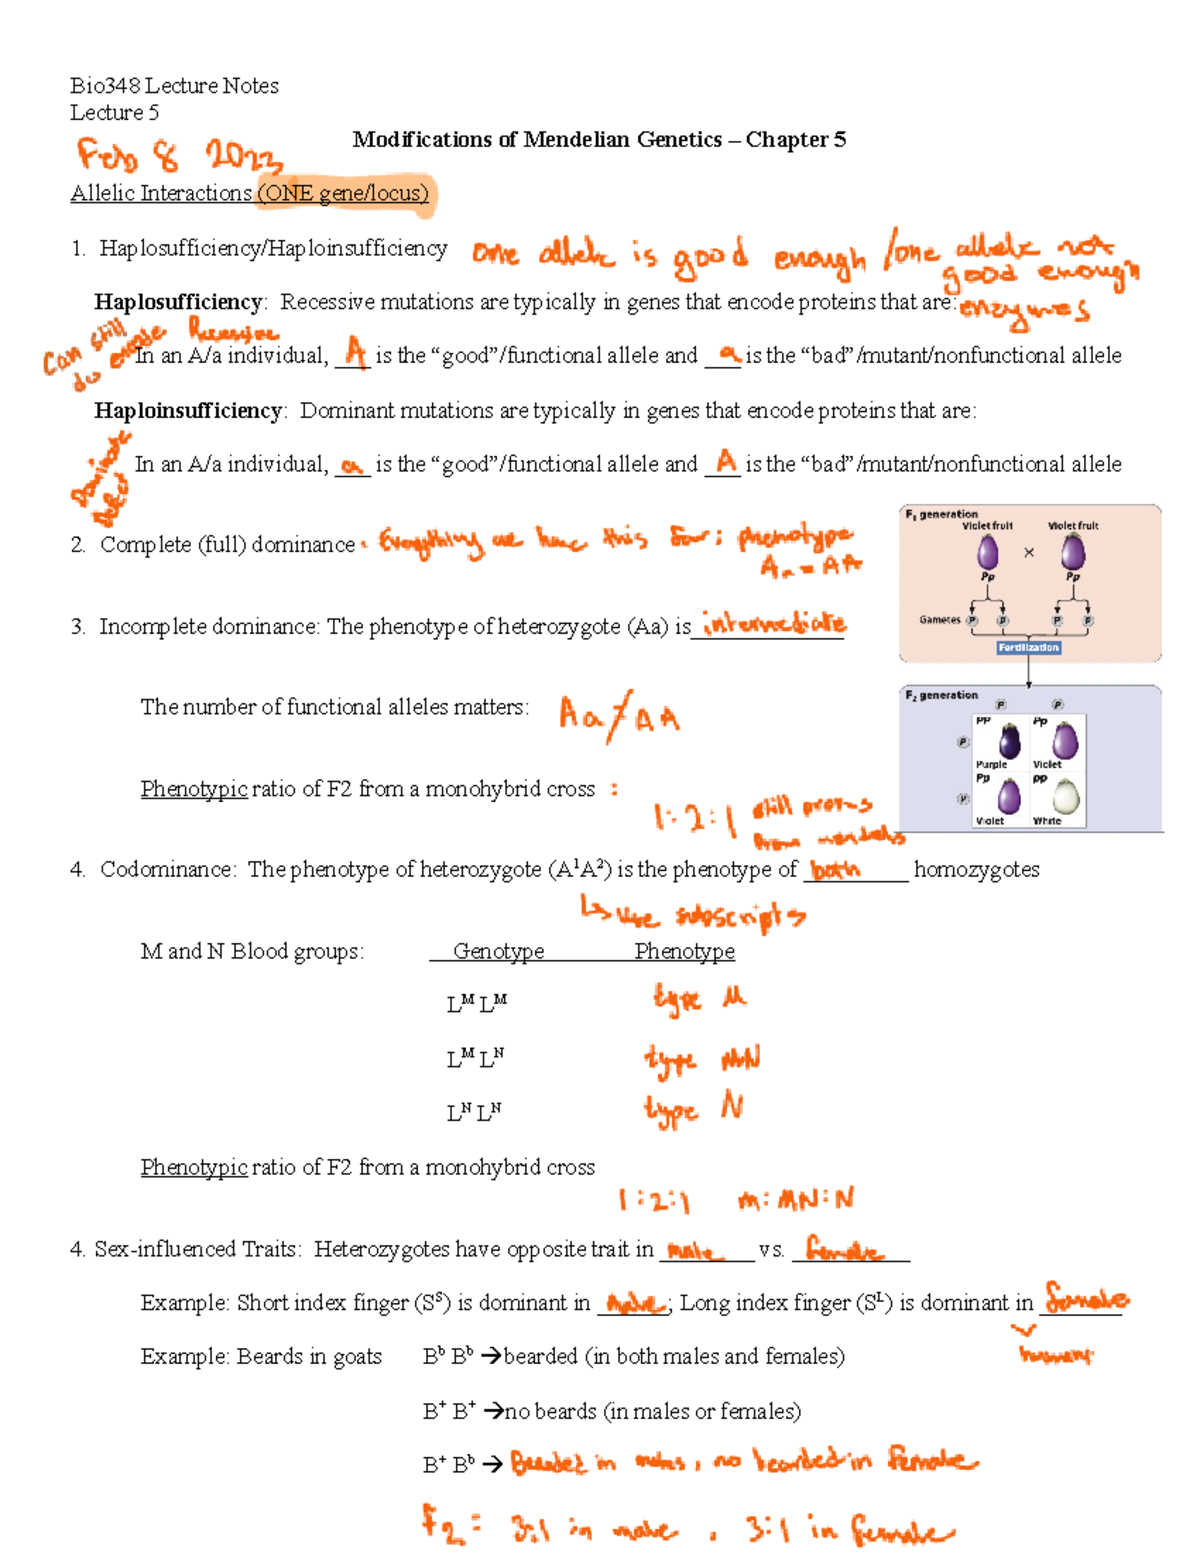 Bio348 Lecture Notes
Lecture 5
Modifications of Mendelian Genetics – Chapter 5
Feb 8 2023
Allelic Interactions (ONE gene/locus)
1. Haplosufficiency/Haploinsufficiency one allele is good enough /one allele not
good enough
Haplosufficiency: Recessive mutations are typically in genes that encode proteins that are: enzymes
Can still do encode Recessive
In an A/a individual, A is the “good”/functional allele and a is the “bad”/mutant/nonfunctional allele
Haploinsufficiency: Dominant mutations are typically in genes that encode proteins that are:
In an A/a individual, a is the “good”/functional allele and A is the “bad”/mutant/nonfunctional allele
F1 generation
Violet fruit Violet fruit
×
Pp Pp
Gametes P p P p
Fertilization
2. Complete (full) dominance • Everything we have this far: phenotype
Aa = AA
3. Incomplete dominance: The phenotype of heterozygote (Aa) is intermediate
F2 generation
P p
P PP Pp
Purple Violet
p Pp pp
Violet White
The number of functional alleles matters: Aa ≠ AA
Phenotypic ratio of F2 from a monohybrid cross :
1:2:1 still
from
4. Codominance: The phenotype of heterozygote (A¹A²) is the phenotype of both homozygotes
↳ use subscripts
M and N Blood groups: Genotype Phenotype
Lᴹ Lᴹ type M
Lᴹ Lᴺ type MN
Lᴺ Lᴺ type N
Phenotypic ratio of F2 from a monohybrid cross
1:2:1 M:MN:N
4. Sex-influenced Traits: Heterozygotes have opposite trait in male vs. female
Example: Short index finger (Sˢ) is dominant in male; Long index finger (Sᴸ) is dominant in female
humans
Example: Beards in goats Bᵇ Bᵇ →bearded (in both males and females)
B⁺ B⁺ →no beards (in males or females)
B⁺ Bᵇ → Bearded in males, no bearded in female
F2 = 3:1 in male, 3:1 in female